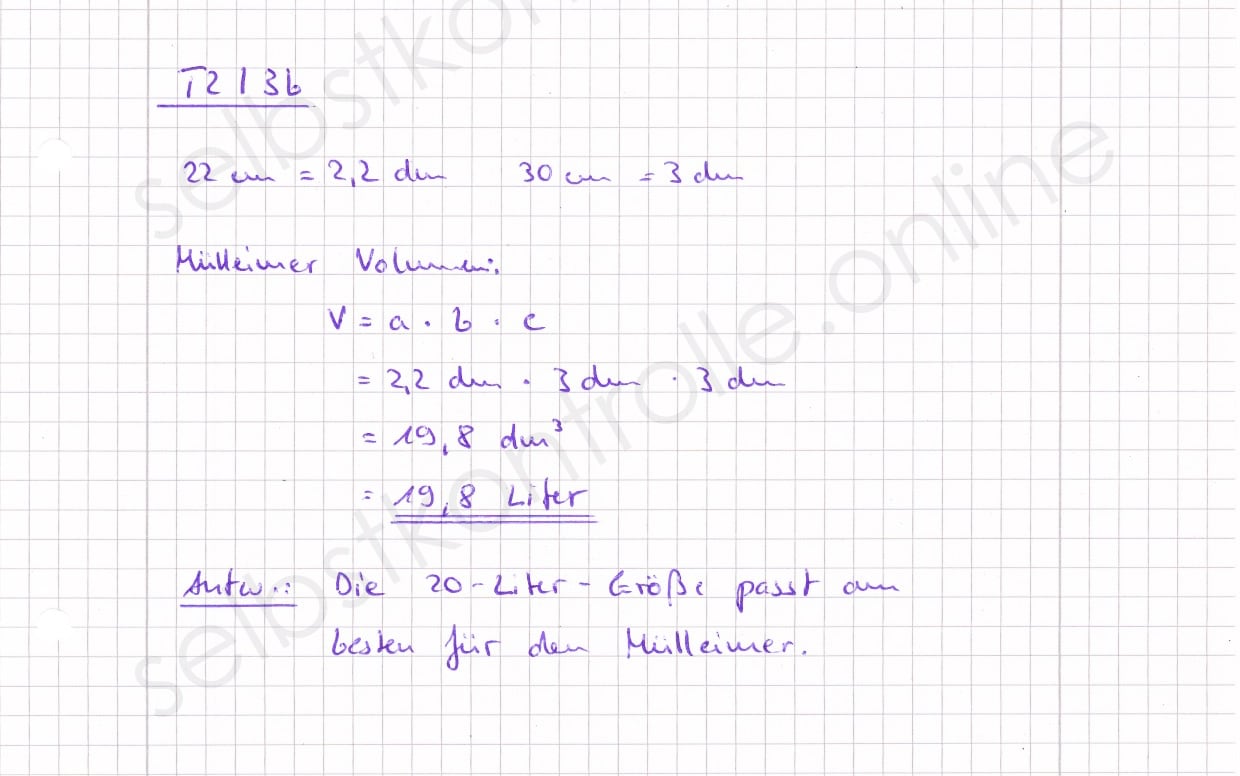 T2 / 3b
22 cm = 2,2 dm 30 cm = 3 dm
Mülleimer Volumen:
V = a · b · c
= 2,2 dm · 3 dm · 3 dm
= 19,8 dm³
= 19,8 Liter
Antw.: Die 20-Liter-Größe passt am
besten für den Mülleimer.
selbstkontrolle.online
selbstkon